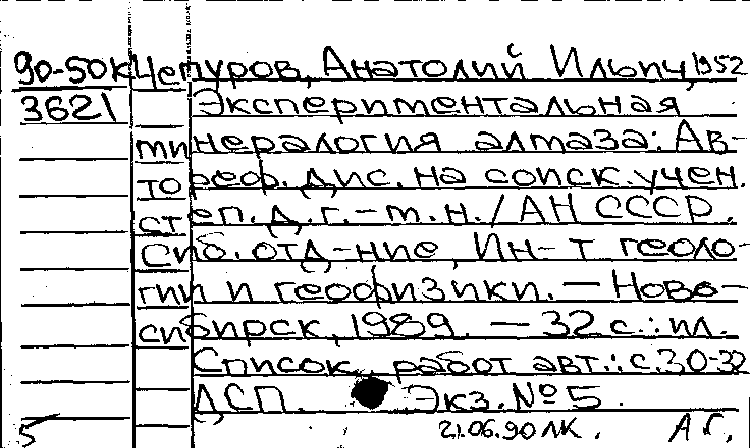 90-50К Чепуров, Анатолий Ильич, 1952
3621 Экспериментальная
минералогия алмаза: Ав-
тореф. дис. на соиск. учен.
степ. д. г.-м. н. / АН СССР.
Сиб. отд-ние, Ин-т геоло-
гии и геофизики. — Ново-
сибирск, 1989. — 32 с.: ил.
Список работ авт.: с. 30-32
ДСП. Экз. № 5.
5 21.06.90 ЛК. АГ,